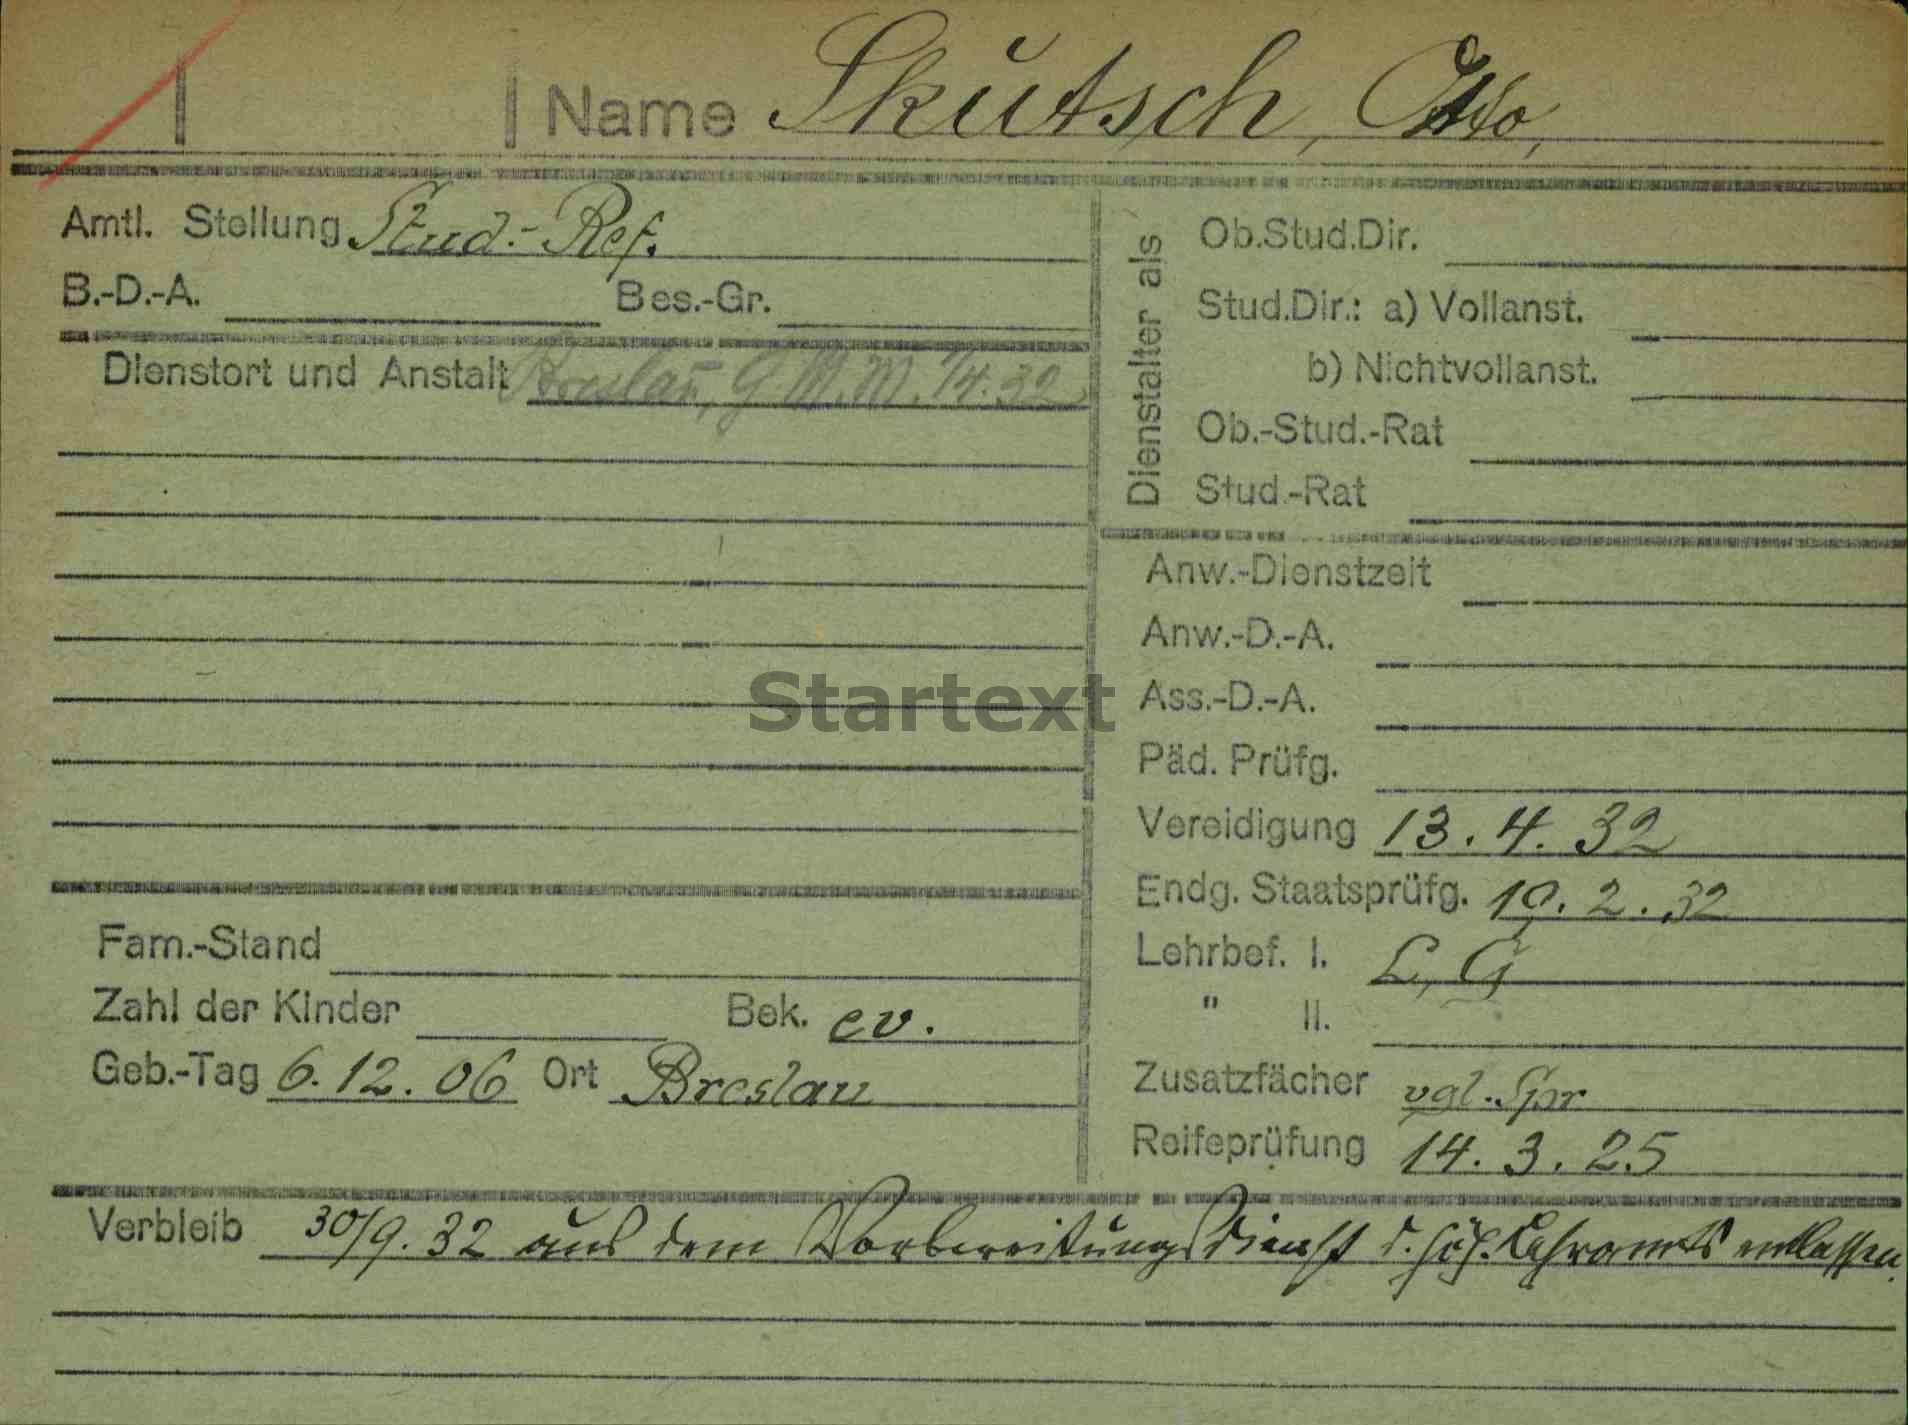 Name Skutsch, Otto,
Amtl. Stellung Stud.-Ref.
B.-D.-A. Bes.-Gr.
Dienstort und Anstalt Breslau, G M.M. 1/4.32
Dienstalter als
Ob.Stud.Dir.
Stud.Dir.: a) Vollanst.
b) Nichtvollanst.
Ob.-Stud.-Rat
Stud.-Rat
Anw.-Dienstzeit
Anw.-D.-A.
Ass.-D.-A.
Päd. Prüfg.
Vereidigung 13.4.32
Endg. Staatsprüfg. 19.2.32
Lehrbef. I. L, G
" II.
Zusatzfächer vgl. Spr
Reifeprüfung 14.3.25
Fam.-Stand
Zahl der Kinder Bek. ev.
Geb.-Tag 6.12.06 Ort Breslau
Verbleib 30/9.32 aus dem Vorbereitungsdienst d. höh. Lehramts entlassen.
Startext